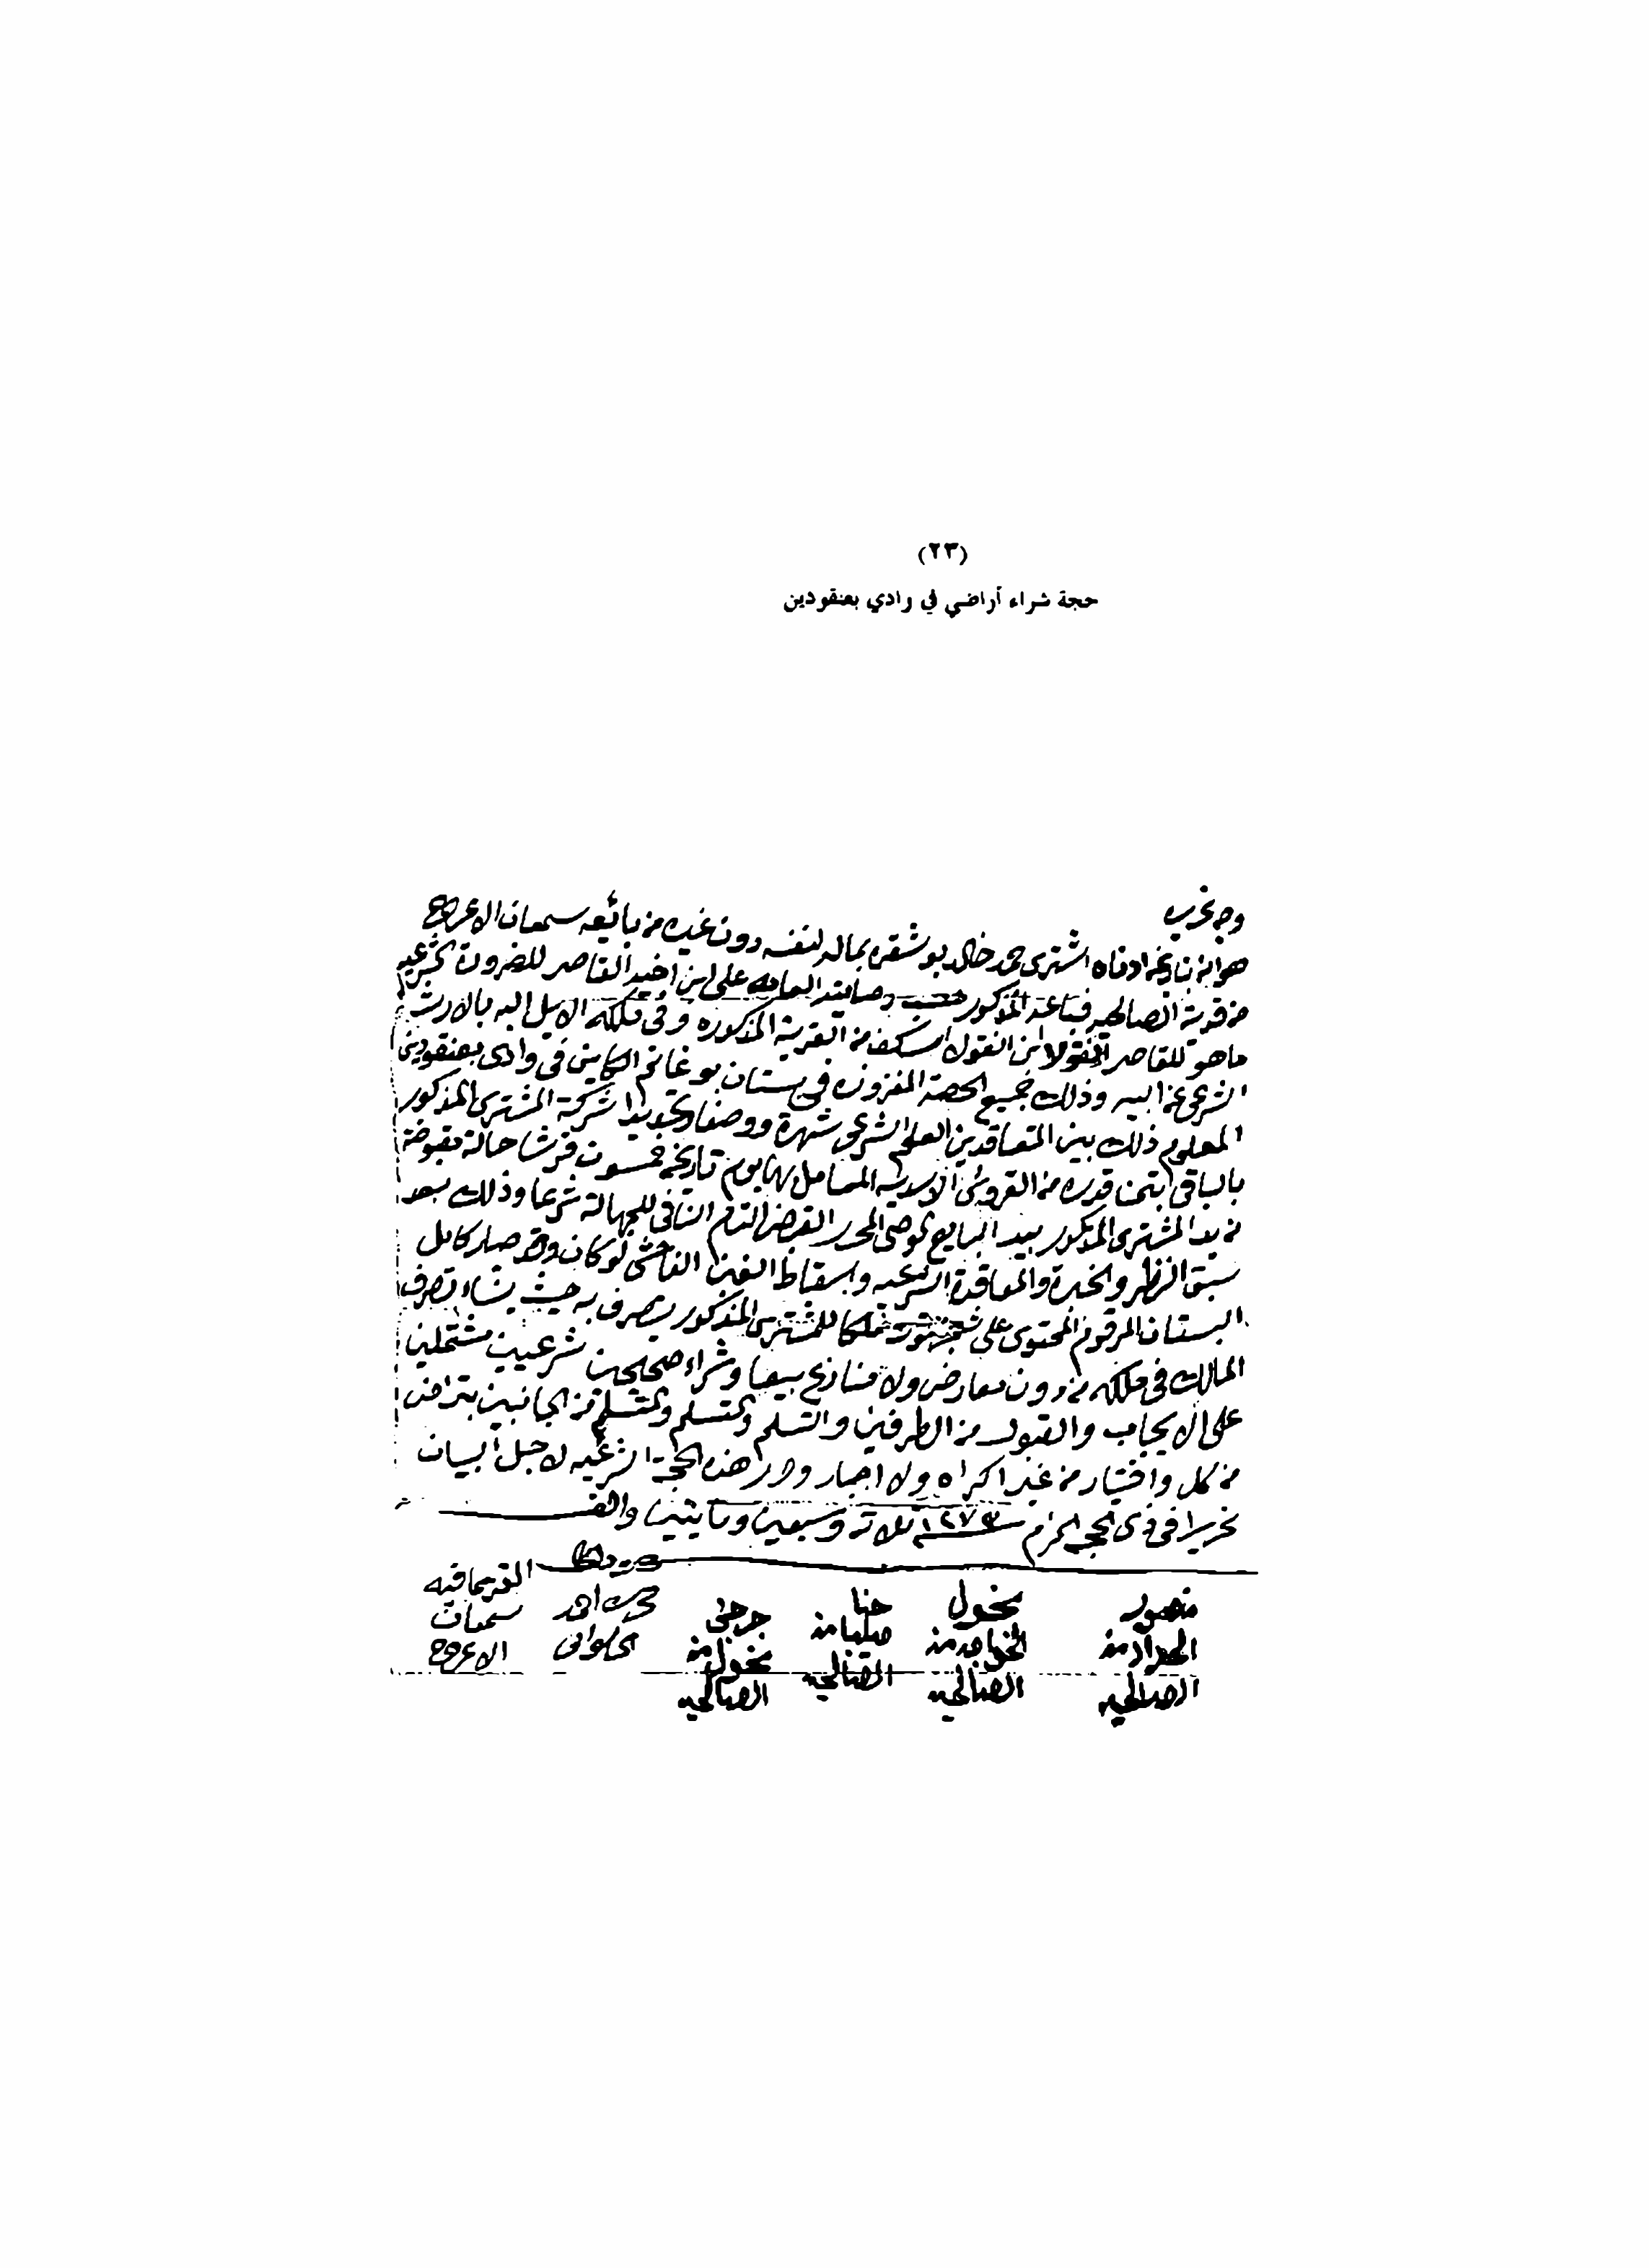 (٢٣)
حجة شراء أراضي في وادي بعنقودين
وجه تحريره
هو انه بتاريخه ادناه اشترى محمد خالد بو شقره بماله لنفسه دون غيره من بائعه سمعان الاعرج
من قرية الصالحيه فباعه المذكور وصايته العامه على ابن اخيه القاصر للضرورة
ما هو للقاصر ابن النقولا من القرية المذكوره وفي ملكه الايل اليه بالارث
الشرعي عن ابيه وذلك جميع الحصة المفروزه في بستان بو غانم الكاين في وادي بعنقودين
المعلوم ذلك بين المتعاقدين العلم الشرعي شهرة ووصفا وتحديدا شركة المشتري المذكور
بالباقي بثمن قدره من القروش الاسديه المعامل بها يوم تاريخه خمسون قرشا حالة مقبوضة
من يد المشتري المذكور بيد البايع القبض التام النافي للجهالة شرعا وذلك بعد
سبق النظر والخبرة والمعاقدة الشرعيه واسقاط الغبن الفاحش لو كان وقد صار كامل
البستان المرقوم المحتوي على ملكا للمشتري المذكور يتصرف به حيث يشاء تصرف
المالك في ملكه من دون معارض ولا منازع بيعا وشراء صحيحين شرعيين مشتملين
على الايجاب والقبول من الطرفين والتسلم والتسليم من الجانبين بتراض
من كل واختيار من غير اكراه ولا اجبار وحرر هذه الحجة الشرعيه لاجل البيان
تحريرا في ذي الحجه الحرام ١٢٧٣ ثلاثة وسبعين ومايتين والف
منصور الحداد من الصالحيه
نخول من الصالحيه
حنا صليبا من الصالحيه
جرجس نخول من الصالحيه
الحلواني
القر بما فيه سمعان الاعرج